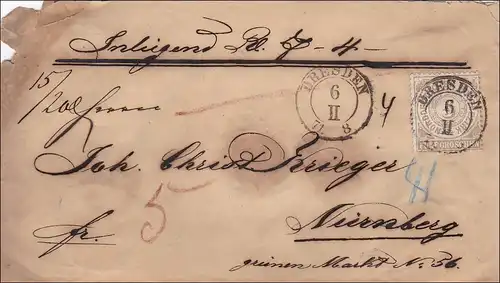 Inliegend Rl. 7-4-
DRESDEN
6
II
8
DRESDEN
6
II
GROSCHEN
4
15/
Herrn
Joh. Christ. Krieger
5
Nürnberg
fr.
grünen Markt No. 56.